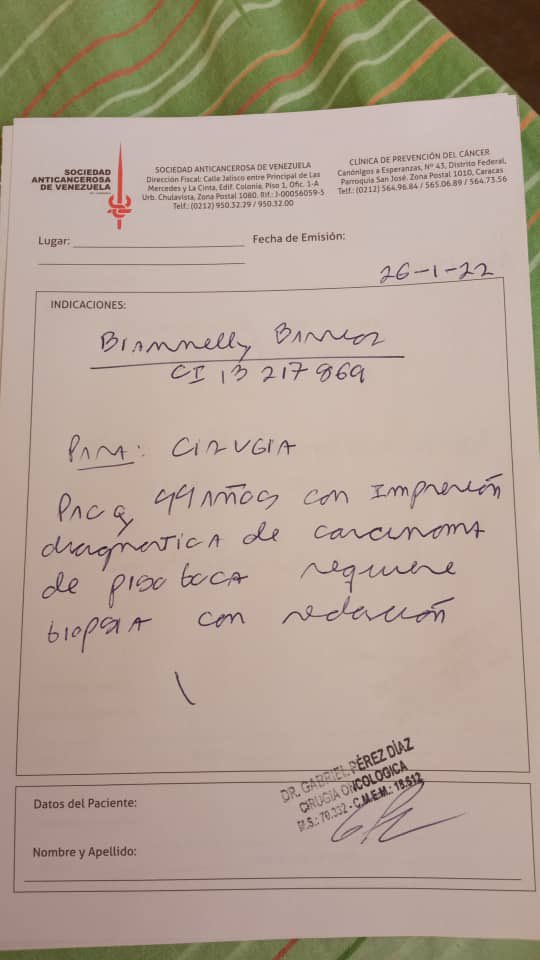 SOCIEDAD
ANTICANCEROSA
DE VENEZUELA
SOCIEDAD ANTICANCEROSA DE VENEZUELA
Dirección Fiscal: Calle Jalisco entre Principal de Las
Mercedes y La Cinta, Edif. Colonia, Piso 1, Ofic. 1-A
Urb. Chulavista, Zona Postal 1080, Rif.: J-00056059-5
Telf.: (0212) 950.32.29 / 950.32.00
CLÍNICA DE PREVENCIÓN DEL CÁNCER
Canónigos a Esperanzas, Nº 43, Distrito Federal,
Parroquia San José. Zona Postal 1010, Caracas
Telf.: (0212) 564.96.84 / 565.06.89 / 564.73.56
Lugar:
Fecha de Emisión:
26-1-22
INDICACIONES:
Biannelly
CI 13 217 869
PARA: CIRUGIA
Pac 44 AÑOS con Impresión
diagnostica de carcinoma
de piso boca requiere
biopsia con sedación
DR. GABRIEL PÉREZ DÍAZ
CIRUGIA ONCOLOGICA
M.S.: 70.332 - C.M.E.M.: 18.612
Datos del Paciente:
Nombre y Apellido: